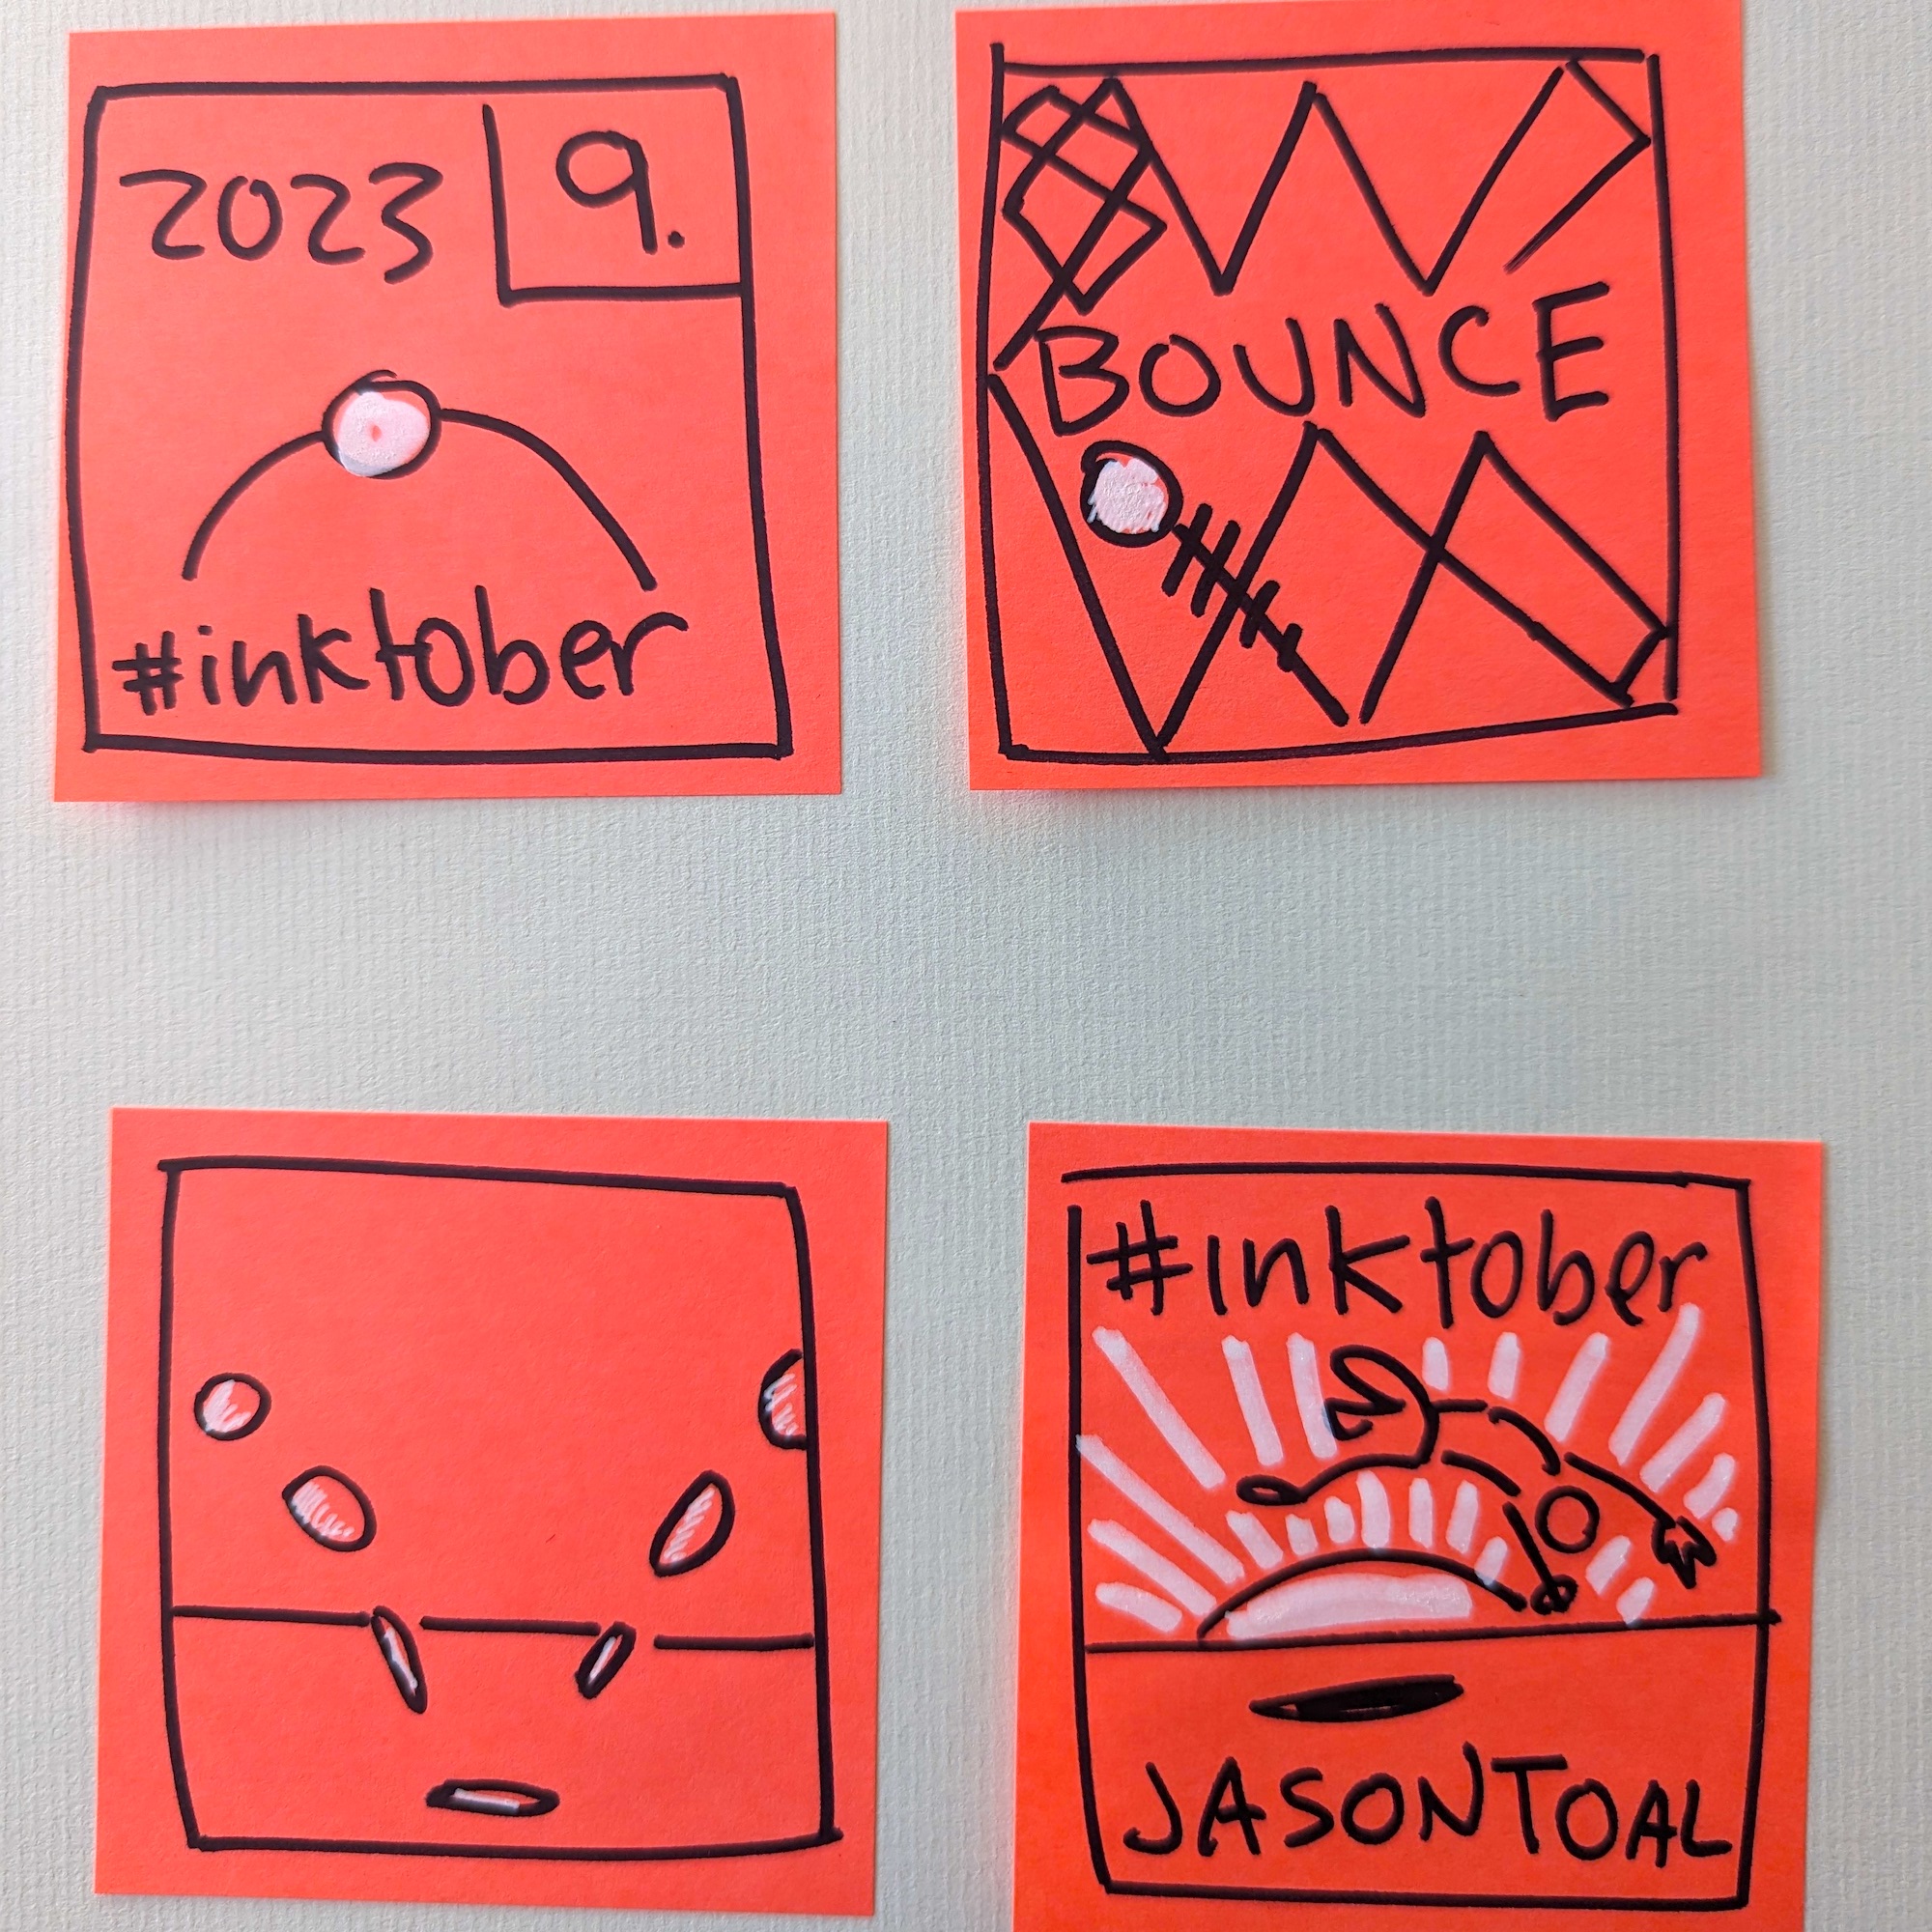 2023 9.
#inktober
BOUNCE
#inktober
JASONTOAL